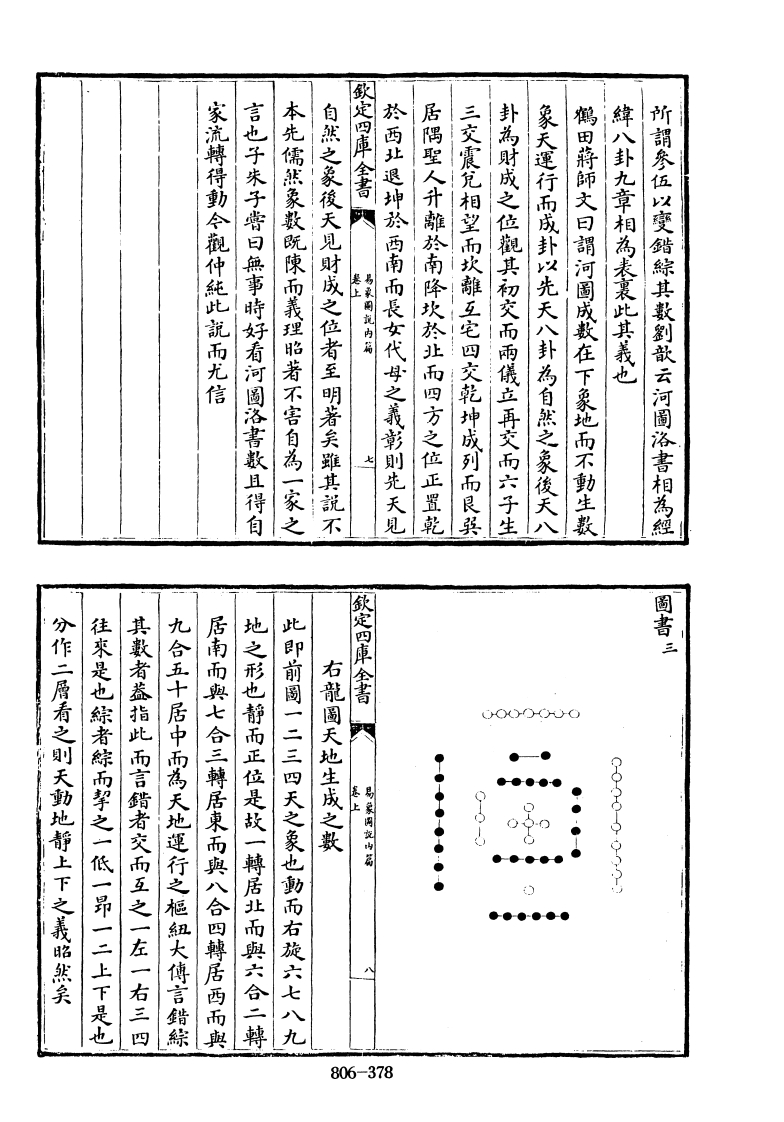 所謂參伍以變錯綜其數劉歆云河圖洛書相為經
緯八卦九章相為表裏此其義也
鶴田蔣師文曰謂河圖成數在下象地而不動生數
象天運行而成卦以先天八卦為自然之象後天八
卦為財成之位觀其初交而兩儀立再交而六子生
三交震兌相望而坎離互宅四交乾坤成列而艮巽
居隅聖人升離於南降坎於北而四方之位正置乾
於西北退坤於西南而長女代母之義彰則先天見
欽定四庫全書
易象圖說內篇
卷上
七
自然之象後天見財成之位者至明著矣雖其說不
本先儒然象數既陳而義理昭著不害自為一家之
言也子朱子嘗曰無事時好看河圖洛書數且得自
家流轉得動今觀仲純此說而尤信
圖書三
欽定四庫全書
易象圖說內篇
卷上
八
右龍圖天地生成之數
此即前圖一二三四天之象也動而右旋六七八九
地之形也靜而正位是故一轉居北而與六合二轉
居南而與七合三轉居東而與八合四轉居西而與
九合五十居中而為天地運行之樞紐大傳言錯綜
其數者葢指此而言錯者交而互之一左一右三四
往來是也綜者綜而挈之一低一昂一二上下是也
分作二層看之則天動地靜上下之義昭然矣
806-378